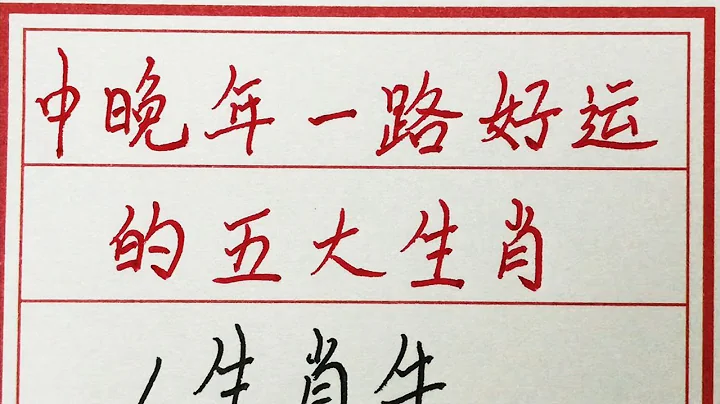 中晚年一路好运
的五大生肖
1生肖牛